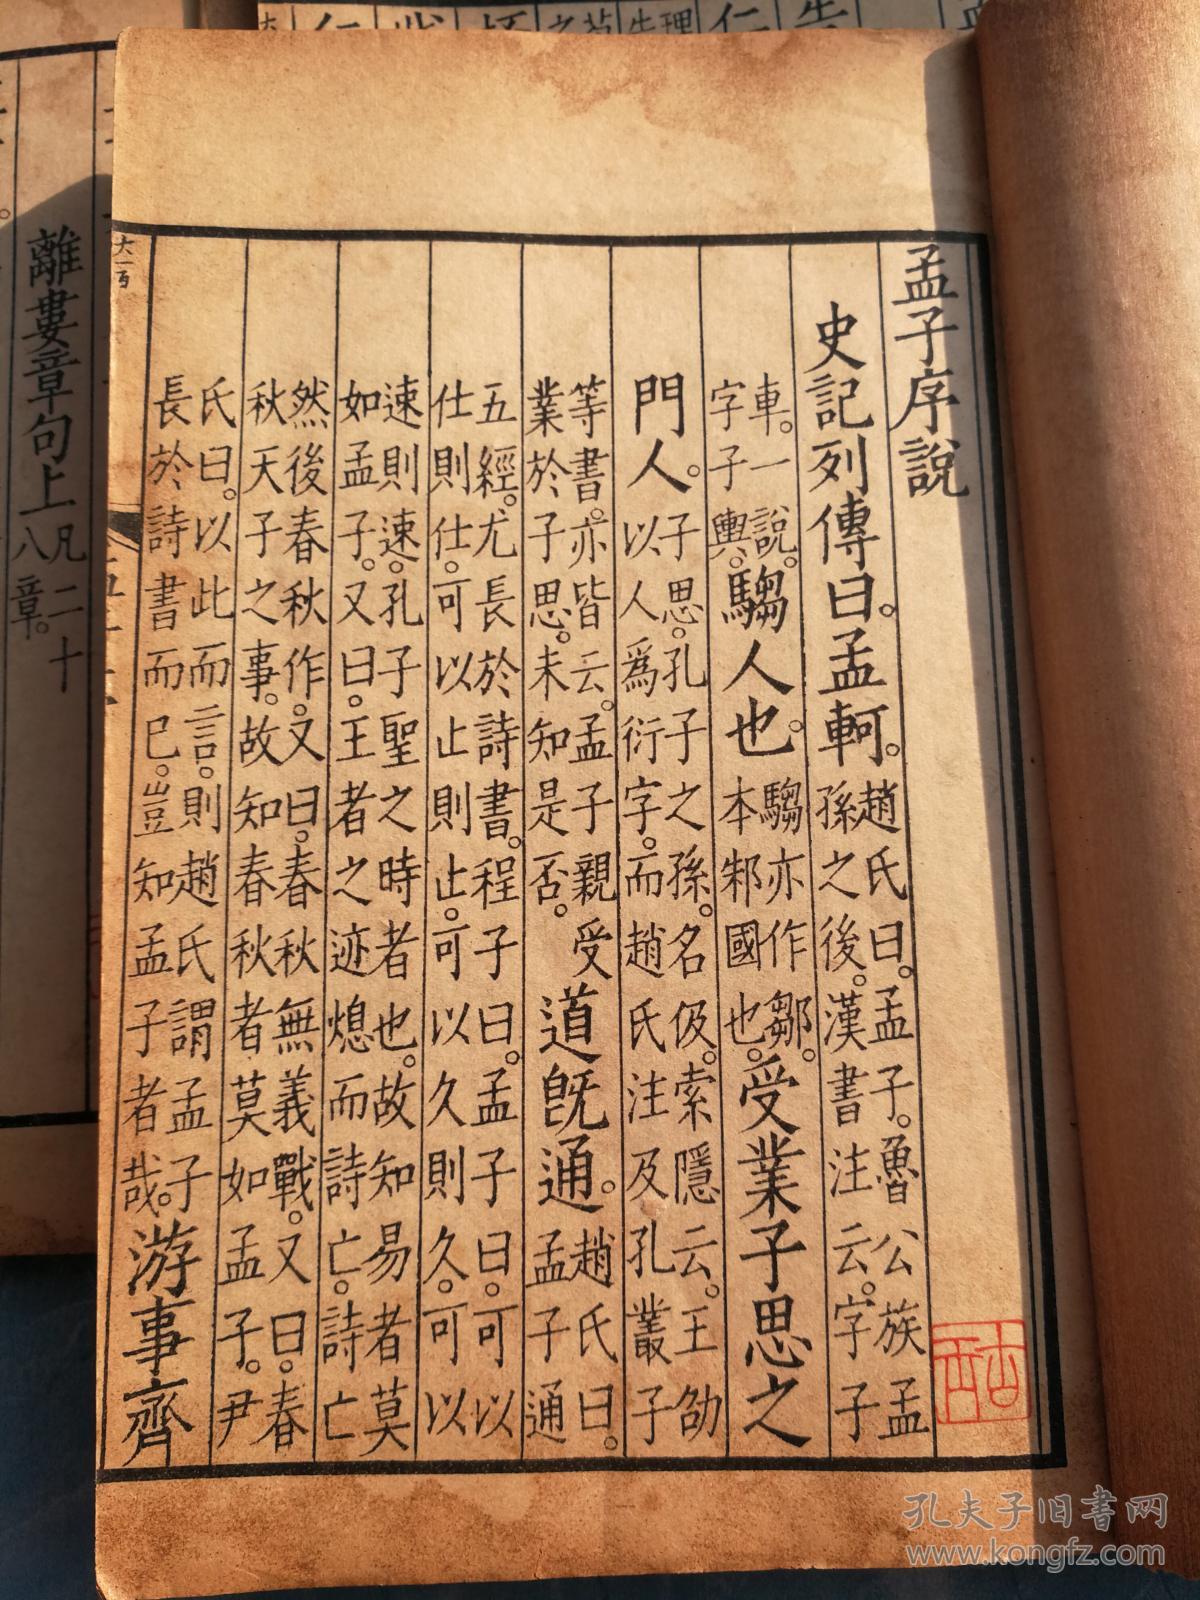 孟子序說
史記列傳曰。孟軻。趙氏曰。孟子。魯公族孟孫之後。漢書注云。字子
車。一說。字子輿。騶人也。騶亦作鄒。本邾國也。受業子思之
門人。子思。孔子之孫。名伋。索隱云。王劭以人爲衍字。而趙氏注及孔叢子
等書。亦皆云。孟子親受業於子思。未知是否。道旣通。趙氏曰。孟子通
五經。尤長於詩書。程子曰。孟子曰。可以仕則仕。可以止則止。可以久則久。可以
速則速。孔子聖之時者也。故知易者莫如孟子。又曰。王者之迹熄而詩亡。詩亡
然後春秋作。又曰。春秋無義戰。又曰。春秋天子之事。故知春秋者莫如孟子。尹
氏曰。以此而言。則趙氏謂孟子長於詩書而已。豈知孟子者哉。游事齊
離婁章句上凡二十八章。
孔夫子旧书网
www.kongfz.com